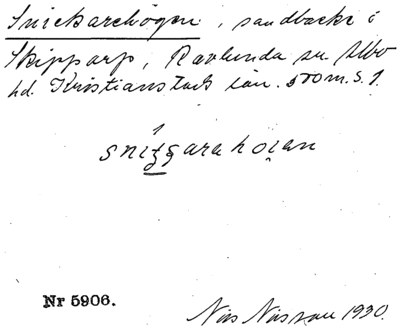 Snickarehögen, sandbacke i
Skipparp, Ravlunda sn. Albo
hd. Kristianstads län. 500 m. S. 1.
Nr 5906.
Nils Nilsson 1930.